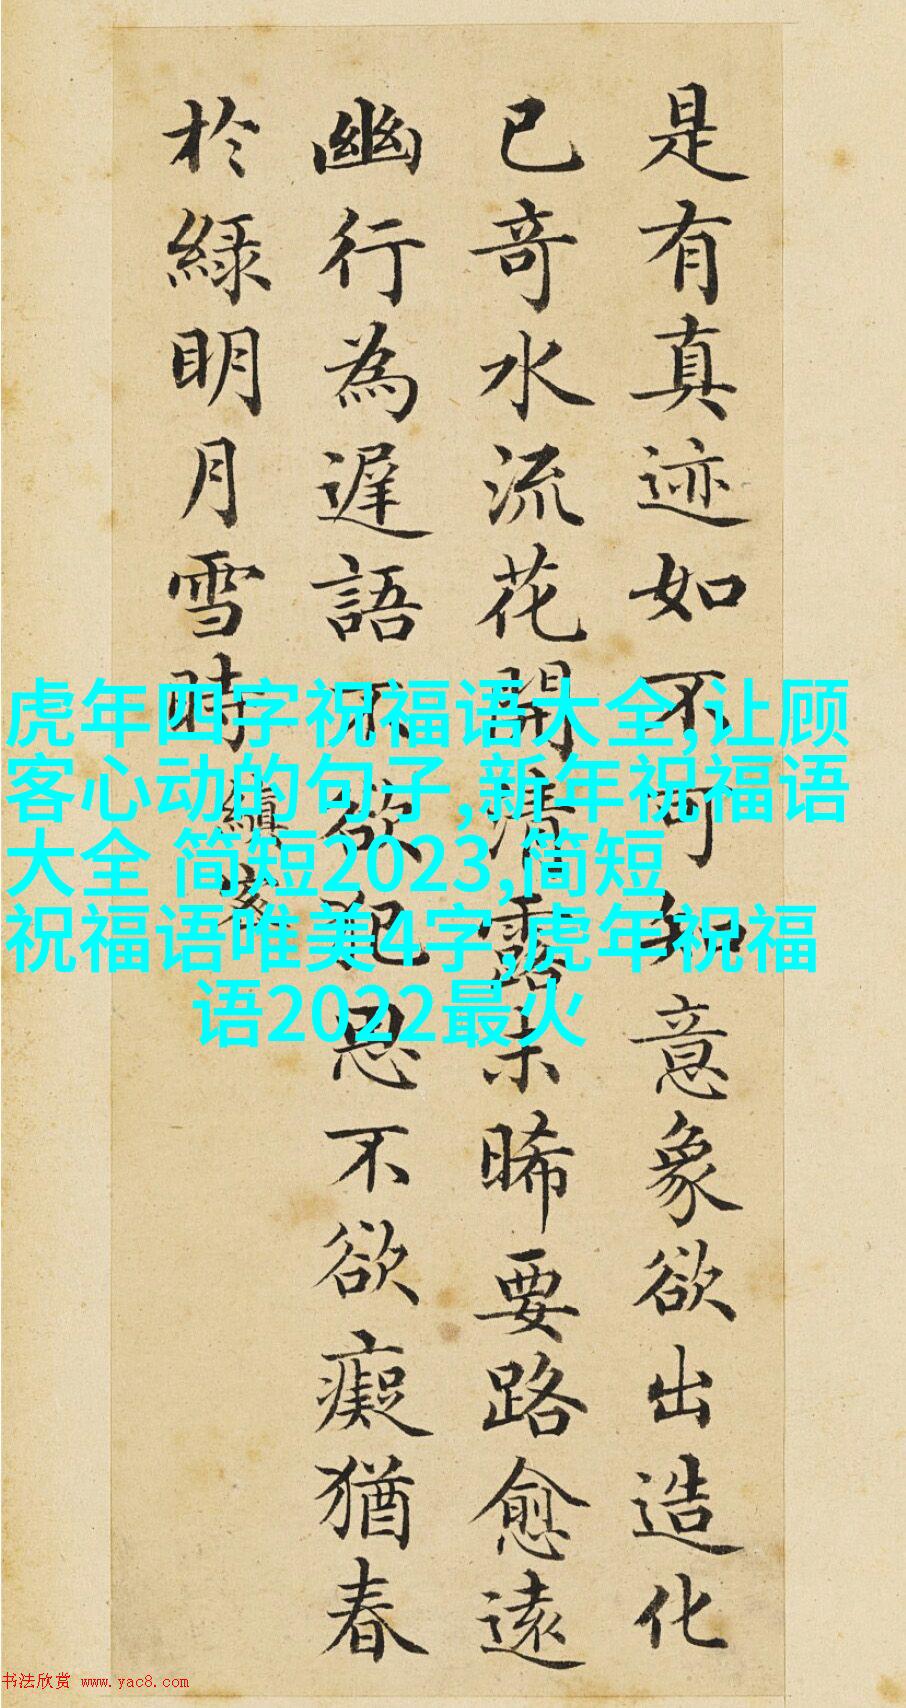 是有真迹如不可知意象欲出造化
已奇水流花開清露未晞要路愈遠
幽行為遲語不欲犯思不欲癡猶春
於綠明月雪時
縝密
虎年四字祝福语大全,让顾
客心动的句子,新年祝福语
大全 简短2023,简短
祝福语唯美4字,虎年祝福
语2022最火
书法欣赏 www.yac8.com